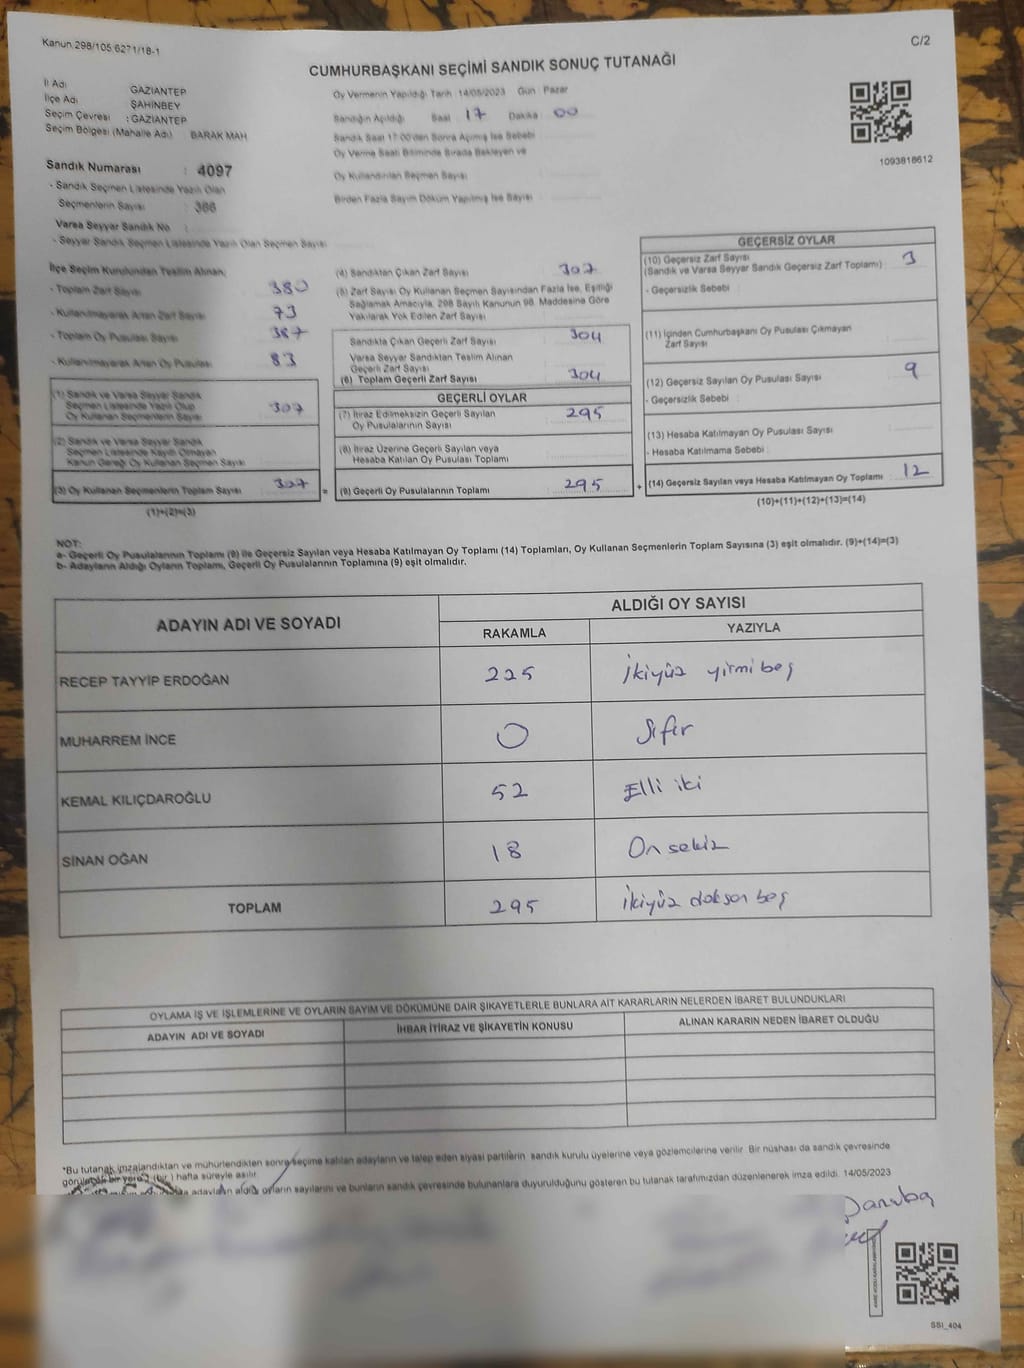 Kanun.298/105.6271/18-1
C/2
CUMHURBAŞKANI SEÇİMİ SANDIK SONUÇ TUTANAĞI
İl Adı GAZİANTEP
İlçe Adı ŞAHİNBEY
Seçim Çevresi : GAZİANTEP
Seçim Bölgesi (Mahalle Adı) BARAK MAH
Oy Vermenin Yapıldığı Tarih 14/05/2023 Gün Pazar
Sandığın Açıldığı Saat 17 Dakika 00
Sandık Saat 17:00'den Sonra Açılmış İse Sebebi
Oy Verme Saati Bitiminde Sırada Bekleyen ve
Oy Kullandırılan Seçmen Sayısı
Birden Fazla Sayım Döküm Yapılmış İse Sayısı
1093818612
Sandık Numarası : 4097
- Sandık Seçmen Listesinde Yazılı Olan
Seçmenlerin Sayısı : 366
Varsa Seyyar Sandık No :
- Seyyar Sandık Seçmen Listesinde Yazılı Olan Seçmen Sayısı
İlçe Seçim Kurulundan Teslim Alınan;
- Toplam Zarf Sayısı 380
- Kullanılmayarak Artan Zarf Sayısı 73
- Toplam Oy Pusulası Sayısı 387
- Kullanılmayarak Artan Oy Pusulası 83
(1) Sandık ve Varsa Seyyar Sandık
Seçmen Listesinde Yazılı Olup
Oy Kullanan Seçmenlerin Sayısı 307
(2) Sandık ve Varsa Seyyar Sandık
Seçmen Listesinde Kayıtlı Olmayan
Kanun Gereği Oy Kullanan Seçmen Sayısı
(3) Oy Kullanan Seçmenlerin Toplam Sayısı 307 =
(1)+(2)=(3)
(4) Sandıktan Çıkan Zarf Sayısı 307
(5) Zarf Sayısı Oy Kullanan Seçmen Sayısından Fazla İse, Eşitliği
Sağlamak Amacıyla, 298 Sayılı Kanunun 98. Maddesine Göre
Yakılarak Yok Edilen Zarf Sayısı
Sandıkta Çıkan Geçerli Zarf Sayısı 304
Varsa Seyyar Sandıktan Teslim Alınan
Geçerli Zarf Sayısı
(6) Toplam Geçerli Zarf Sayısı 304
GEÇERLİ OYLAR
(7) İtiraz Edilmeksizin Geçerli Sayılan
Oy Pusulalarının Sayısı 295
(8) İtiraz Üzerine Geçerli Sayılan veya
Hesaba Katılan Oy Pusulası Toplamı
(9) Geçerli Oy Pusulalarının Toplamı 295 +
GEÇERSİZ OYLAR
(10) Geçersiz Zarf Sayısı 3
(Sandık ve Varsa Seyyar Sandık Geçersiz Zarf Toplamı)
- Geçersizlik Sebebi
(11) İçinden Cumhurbaşkanı Oy Pusulası Çıkmayan
Zarf Sayısı
(12) Geçersiz Sayılan Oy Pusulası Sayısı 9
- Geçersizlik Sebebi
(13) Hesaba Katılmayan Oy Pusulası Sayısı
- Hesaba Katılmama Sebebi
(14) Geçersiz Sayılan veya Hesaba Katılmayan Oy Toplamı 12
(10)+(11)+(12)+(13)=(14)
NOT:
a- Geçerli Oy Pusulalarının Toplamı (9) ile Geçersiz Sayılan veya Hesaba Katılmayan Oy Toplamı (14) Toplamları, Oy Kullanan Seçmenlerin Toplam Sayısına (3) eşit olmalıdır. (9)+(14)=(3)
b- Adayların Aldığı Oyların Toplamı, Geçerli Oy Pusulalarının Toplamına (9) eşit olmalıdır.
ADAYIN ADI VE SOYADI ALDIĞI OY SAYISI
RAKAMLA YAZIYLA
RECEP TAYYİP ERDOĞAN 225 İkiyüz yirmibeş
MUHARREM İNCE 0 Sıfır
KEMAL KILIÇDAROĞLU 52 Elli iki
SİNAN OĞAN 18 On sekiz
TOPLAM 295 İkiyüz doksan beş
OYLAMA İŞ VE İŞLEMLERİNE VE OYLARIN SAYIM VE DÖKÜMÜNE DAİR ŞİKAYETLERLE BUNLARA AİT KARARLARIN NELERDEN İBARET BULUNDUKLARI
ADAYIN ADI VE SOYADI İHBAR İTİRAZ VE ŞİKAYETİN KONUSU ALINAN KARARIN NEDEN İBARET OLDUĞU
*Bu tutanak imzalandıktan ve mühürlendikten sonra seçime katılan adayların ve talep eden siyasi partilerin sandık kurulu üyelerine veya gözlemcilerine verilir. Bir nüshası da sandık çevresinde
görülecek bir yere 1 (bir) hafta süreyle asılır.
adayların aldığı oyların sayılarını ve bunların sandık çevresinde bulunanlara duyurulduğunu gösteren bu tutanak tarafımızdan düzenlenerek imza edildi. 14/05/2023
SSI_404